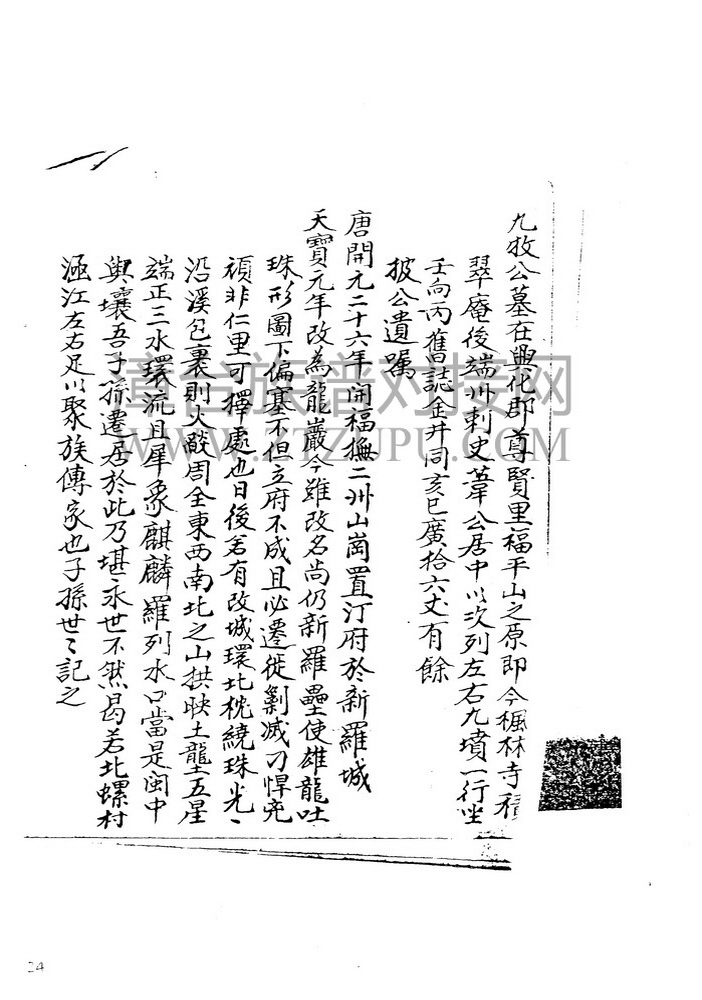 九牧公墓在興化郡尊賢里福平山之原即今楓林寺積
翠庵後端州刺史葦公居中以次列左右九墳一行坐
壬向丙舊誌金井同亥巳廣拾六丈有餘
披公遺嘱
唐開元二十六年開福撫二州山崗置汀府於新羅城
天寶元年改為龍巖今雖改名尚仍新羅壘使雄龍吐
珠形圖下偏塞不但立府不成且必遷徙剿滅刁悍兇
頑非仁里可擇處也日後若有改城環北枕繞珠光〻
沿溪包裹則火燄周全東西南北之山拱映土龍五星
端正三水環流且犀象麒麟羅列水口當是閩中
與壤吾子孫遷居於此乃堪永世不然曷若北螺村
涵江左右足以聚族傳家也子孫世〻記之
漳台族谱对接网
WWW.ZTZUPU.COM
24